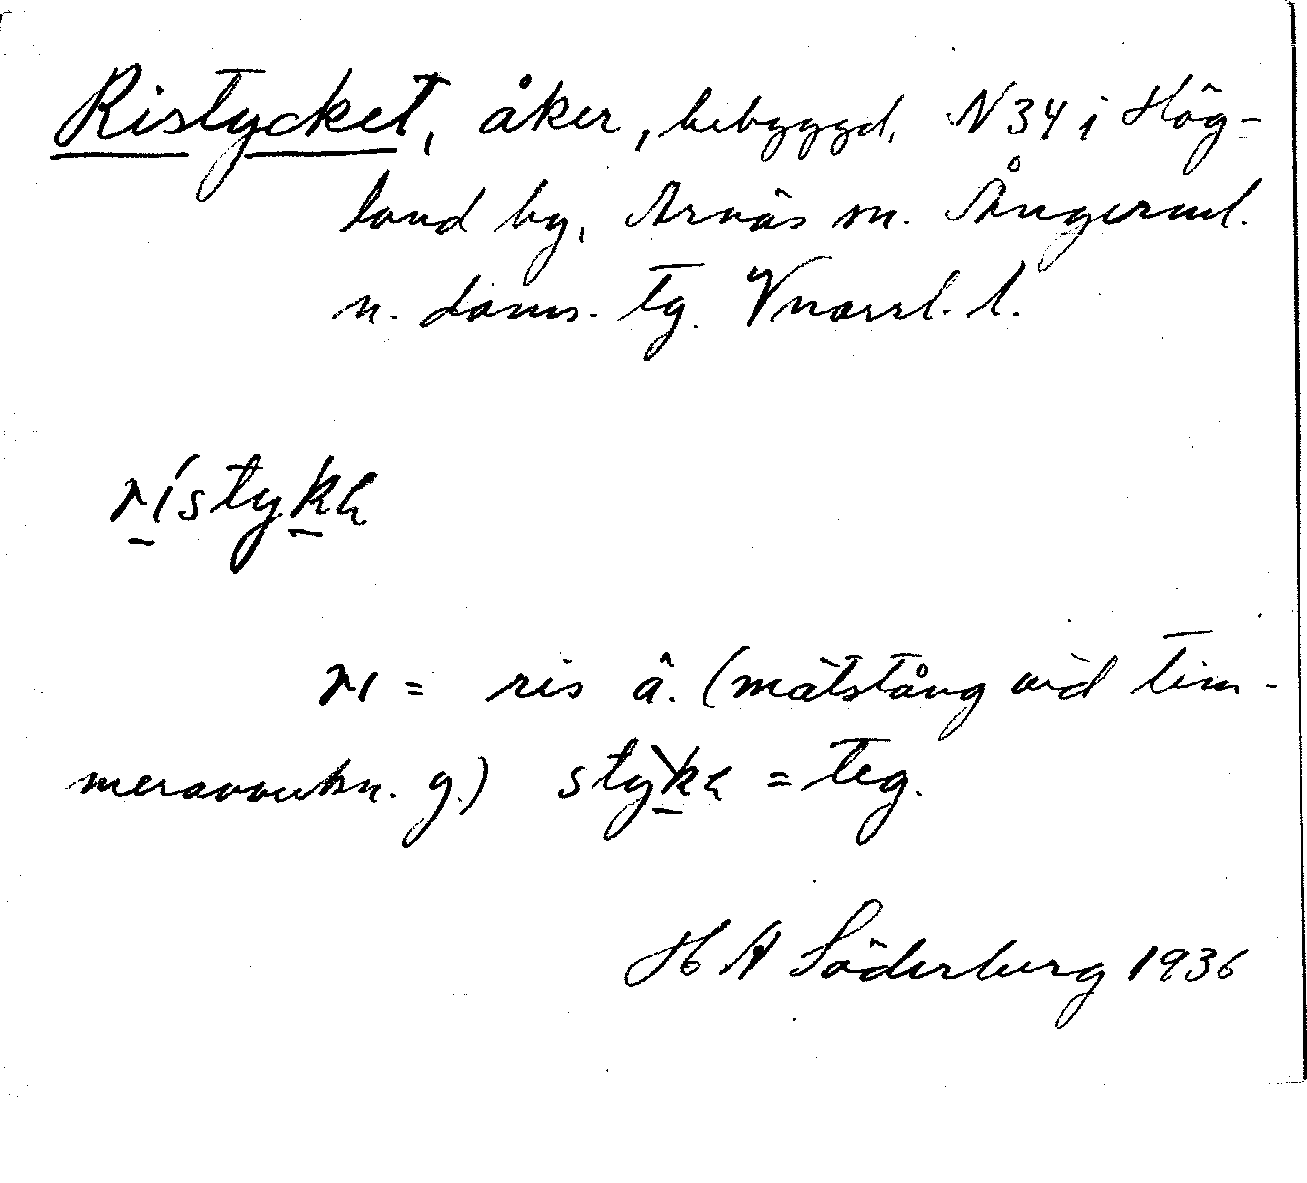 Ristycket, åker, bebyggd, N34 i Hög-
land by, Arnäs sn. Ångerml.
n. doms. tg. Vnorrl. l.
rístykk
ri = ris â. (mätstång vid tim-
meravverkn. g.) stỳkk = teg.
H A Söderberg 1936